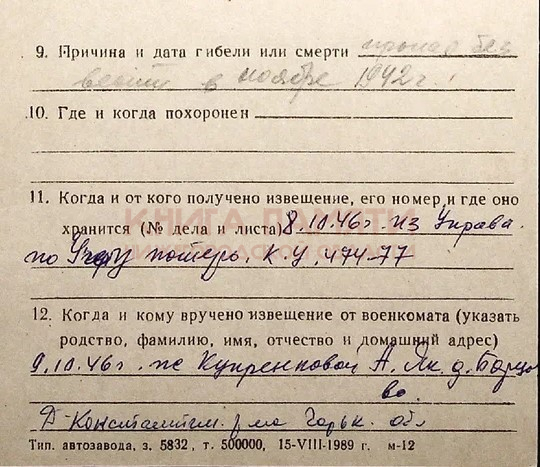 9. Причина и дата гибели или смерти пропал без
вести в ноябре 1942 г.
10. Где и когда похоронен
11. Когда и от кого получено извещение, его номер и где оно
КНИГА ПАМЯТИ
хранится (№ дела и листа) 8.10.46 г. из Управ.
НИЖЕГОРОДСКОЙ ОБЛАСТИ
по Учету потерь. К.У. 474-77
12. Когда и кому вручено извещение от военкомата (указать
родство, фамилию, имя, отчество и домашний адрес)
9.10.46 г. же Купренковой А. Як. д. Барцо
во.
Д-Константин. р-на Горьк. обл
Тип. автозавода, з. 5832, т. 500000, 15-VIII-1989 г. м-12